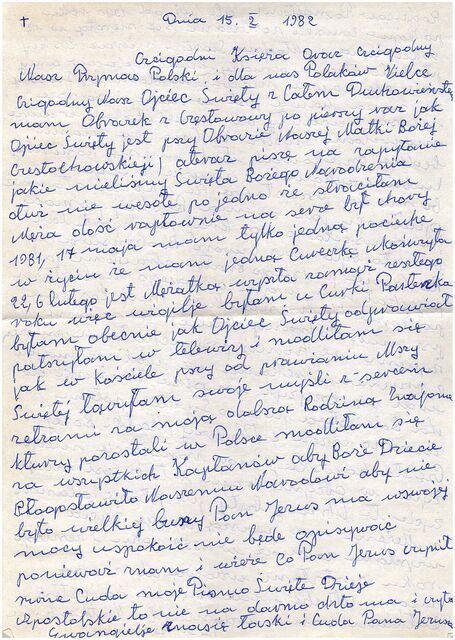 + Dnia 15. I 1982
Czcigodni Księża Oraz czcigodny
Nasz Prymas Polski, i dla nas Polaków Wielce
czcigodny Nasz Ojciec Święty z Całem Duchowieństwem
mam Obrazek z Częstochowy po pierszy raz jak
Ojciec Święty jest przy Obrazie Naszej Matki Bożej
Częstochowskieji) ateraz piszę na zapytanie
jakie mieliśmy Święta Bożego Narodzenia
otuż nie wesołe po jedno że straciłam
Męża dość raptownie na serce był chory
1981, 17 maja mam tylko jedną pocieche
w życiu że mam jedną Cureczkę ukończyła
22, 6 lutego jest Mężatką wyszła zamąż zeszłego
roku więc wigilje byłam u Curki Pasterzka
byłam obecnie jak Ojciec Święty odprawiał
patrzyłam w telewizji i modliłam się
jak w Kościele przy odprawianiu Mszy
Świętej łączyłam swoje myśli z sercem
za moją dalszą Rodziną Znajome
kturzy pozostali w Polsce modliłam się
za wszystkich Kapłanów aby Boże Dziecie
Błogosławiło Naszemu Narodowi aby nie
było wielkiej burzy Pan Jezus ma wswojij
mocy uspokoić nie będę opisywać
ponieważ znam i wierze co Pan Jezus czynił
Cuda moje Pismo Święte Dzieje
Apostolskie to nie na dawno doł ma i czyta
Ewangielje łaski i Cuda Pana Jezusa